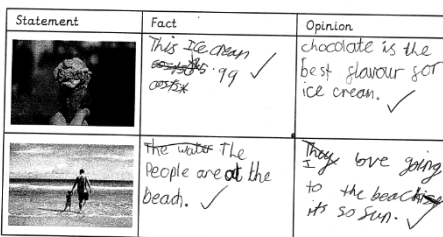 Statement Fact Opinion
This Ice cream
5.99
costs*
chocolate is the
best flavour for
ice cream.
The water The
People are at the
beach.
They love going
I
to the beach
its so fun.